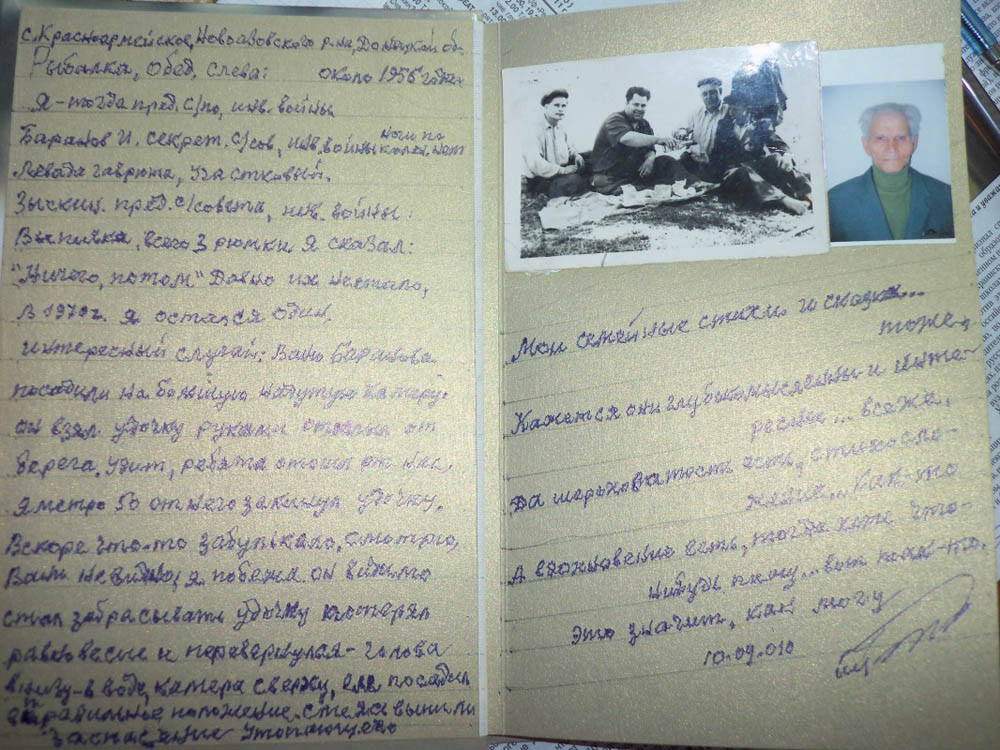 с. Красноармейское, Новоазовского р-на, Донецкой об-
Рыбалка, Обед. Слева: около 1956 года
Я - тогда пред. с/по, инв. войны
Баранов И. секрет. с/сов, инв. войны ноги по колен. нет
Левада Гаврюша, участковый.
Зыский. пред. с/совета, инв. войны.
Выпивка, всего 3 рюмки я сказал:
"Ничего, потом" Давно их нестало,
В 1970 г. я остался один.
интересный случай: Ваню Баранова
посадили на большую надутую камеру.
он взял удочку руками отплыл от
берега. Удит, ребята отошли от них,
я метро 50 от него закинул удочку.
Вскоре что-то забулькало, смотрю,
Вани не видно, я побежа. он видимо
стал забрасывать удочку и потерял
равновесие и перевернулся - голова
внизу - в воде, камера сверху, еле посадил
в правильное положение.
За спасение утопающего
Мои семейные стихи и сказки...
тоже,
Кажется они глубокомысленны и инте-
ресные... всеже,
Да шероховатость есть, стихосло-
жение... как-то
А вдохновение есть, тогда кое что-
нибудь пишу... вот так-то.
Это значит, как могу
10.09.010